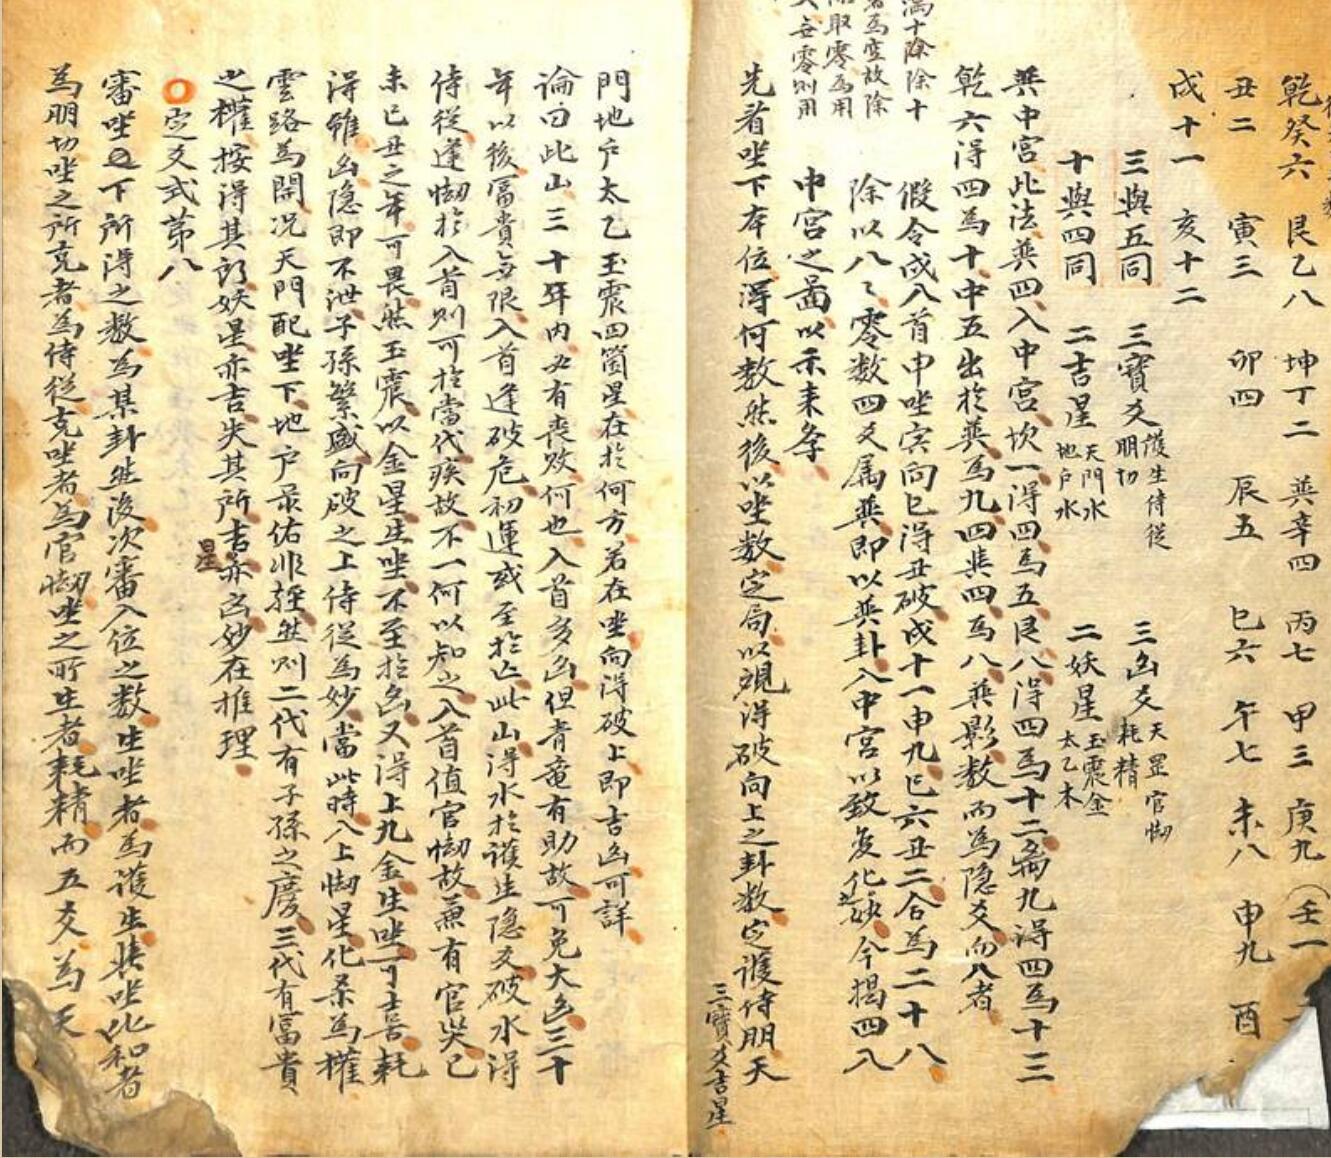 乾癸六 艮乙八 坤丁二 巽辛四 丙七 甲三 庚九 壬一
丑二 寅三 卯四 辰五 巳六 午七 未八 申九 酉
戌十一 亥十二
三與五同 三寶爻 護生侍從 明切 三凶爻 天罡官 耗精
十與四同 二吉星 天門水 地戶水 二妖星 玉震金 太乙木
巽中宮此法巽四入中宮坎一得四為五艮八得四為十二離九得四為十三
乾六得四為十中五出於巽為九四巽四為八巽影数而為隐爻向八者
假令戌入首申坐寅向巳得丑破戌十一申九巳六丑二合為二十八
除以八〻零数四又属巽即以巽卦入中宮以致変化訣今揭四入
中宮之啚以示来孝
滿十除除十
為空故除
取零為用
零則用
先看坐下本位得何数然後以坐数定局以覌得破向上之卦数定護侍朋天
三寶爻吉星
門地户太乙玉震四箇星在於何方若在坐向得破上即吉凶可詳
論曰此山三十年内必有喪敗何也入首多凶但青竜有助故可免大凶三十
年以後冨貴無限入首逢破危初運或至於亡此山得水於護生隐爻破水得
侍從逢刼於入首則可於當代疾故不一何以知之入首值官刼故兼有官灾已
未己丑之年可畏然玉震以金星生坐不至於凶又得上九金生坐可喜耗
得雖凶隐即不泄子孫繁盛向破之上侍從為妙當此時八上刼星化杀為權
雲路為開况天門配坐下地户泶佑非輕然则二代有子孫之慶三代有冨貴
之權按得其形妖星亦吉失其所吉星亦凶妙在推理
定爻式第八
審坐下所得之数為某卦然後次審入位之数生坐者為護生与坐比和者
為明切坐之所克者為侍從克坐者為官刼坐之所生者耗精而五爻為天